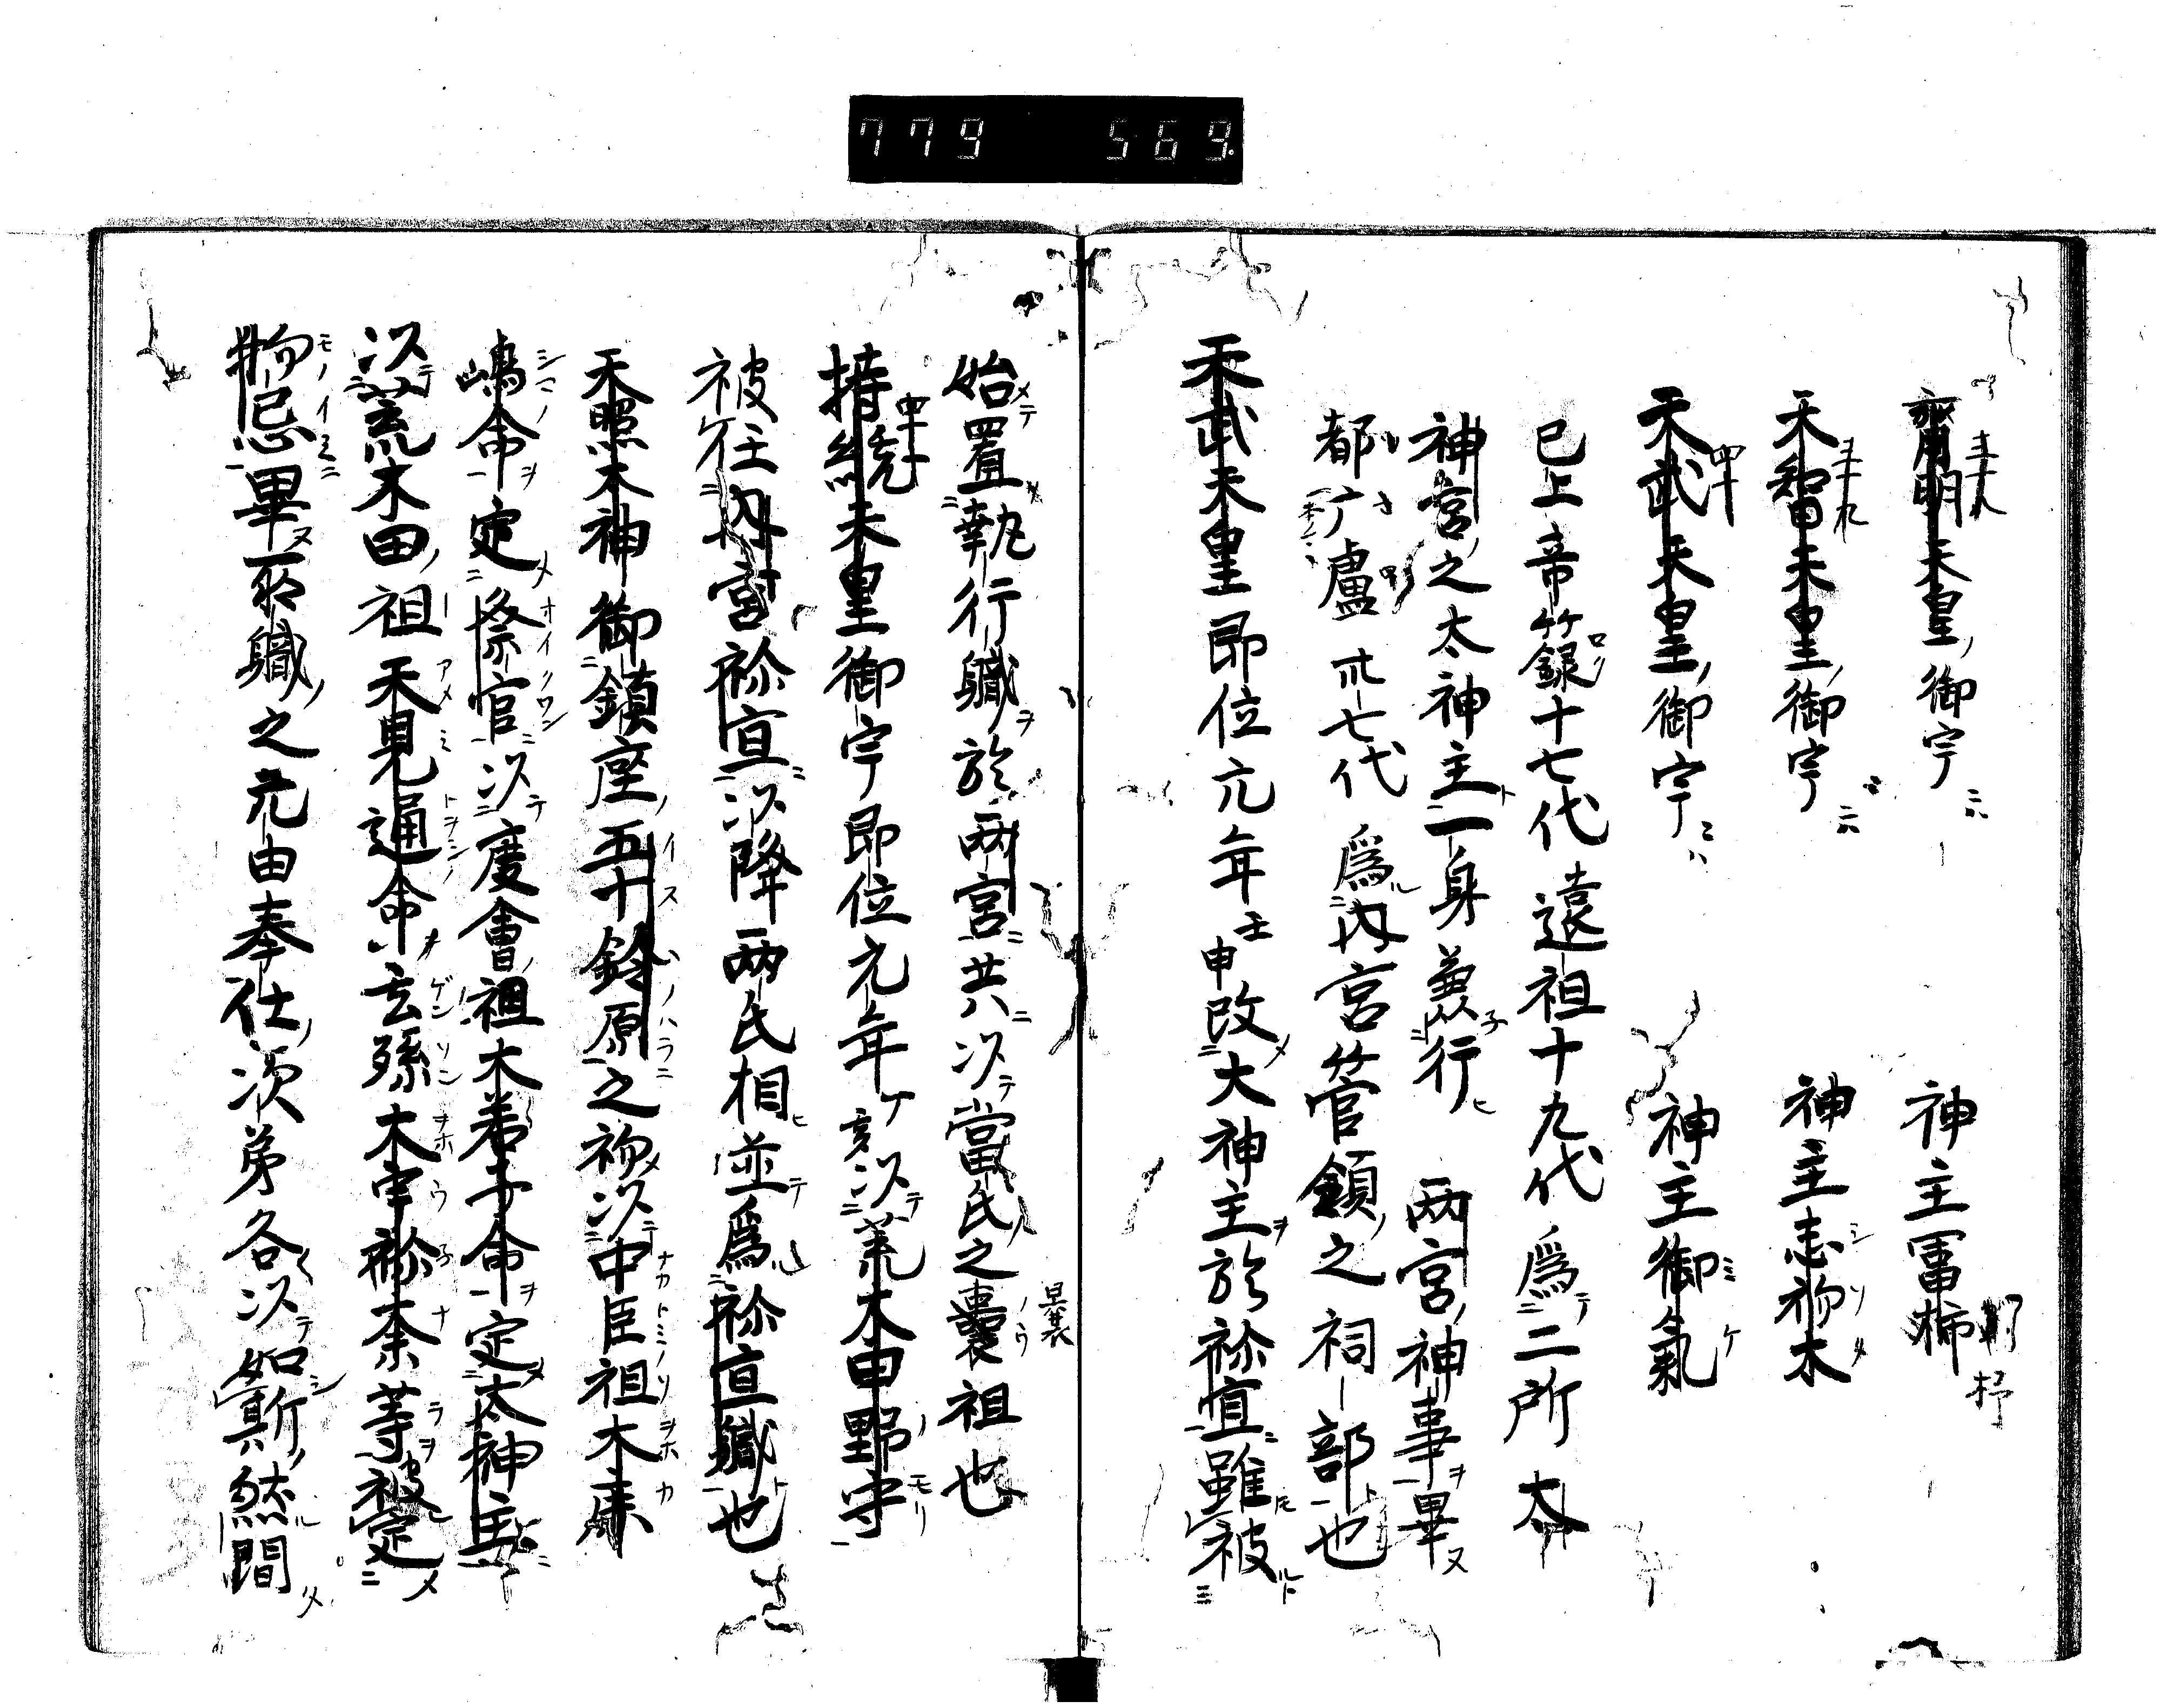 779 569
齊明天皇御宇 神主冨杮
天智天皇御宇 神主志初太
天武天皇御宇 神主御氣
已上帝録十七代遠祖十九代爲二所太
神宮之太神主一身兼行 両宮神事畢
都广盧 卅七代爲内宮管鎮之祠部也
天武天皇即位元年壬申改大神主於祢宜雖被
始置執行軄於両宮共以當氏之曩祖也
持統天皇御宇即位元年以荒木田野守
被任内宮祢宜以降両氏相並爲祢宜軄也
天照太神御鎮座五十鈴原之初以中臣祖大鹿
嶋命定祭官以度會祖大若子命定太神主
以荒木田祖天見通命玄孫大宇祢奈等被定
物忌畢所軄之元由奉仕次第各以如斯然間